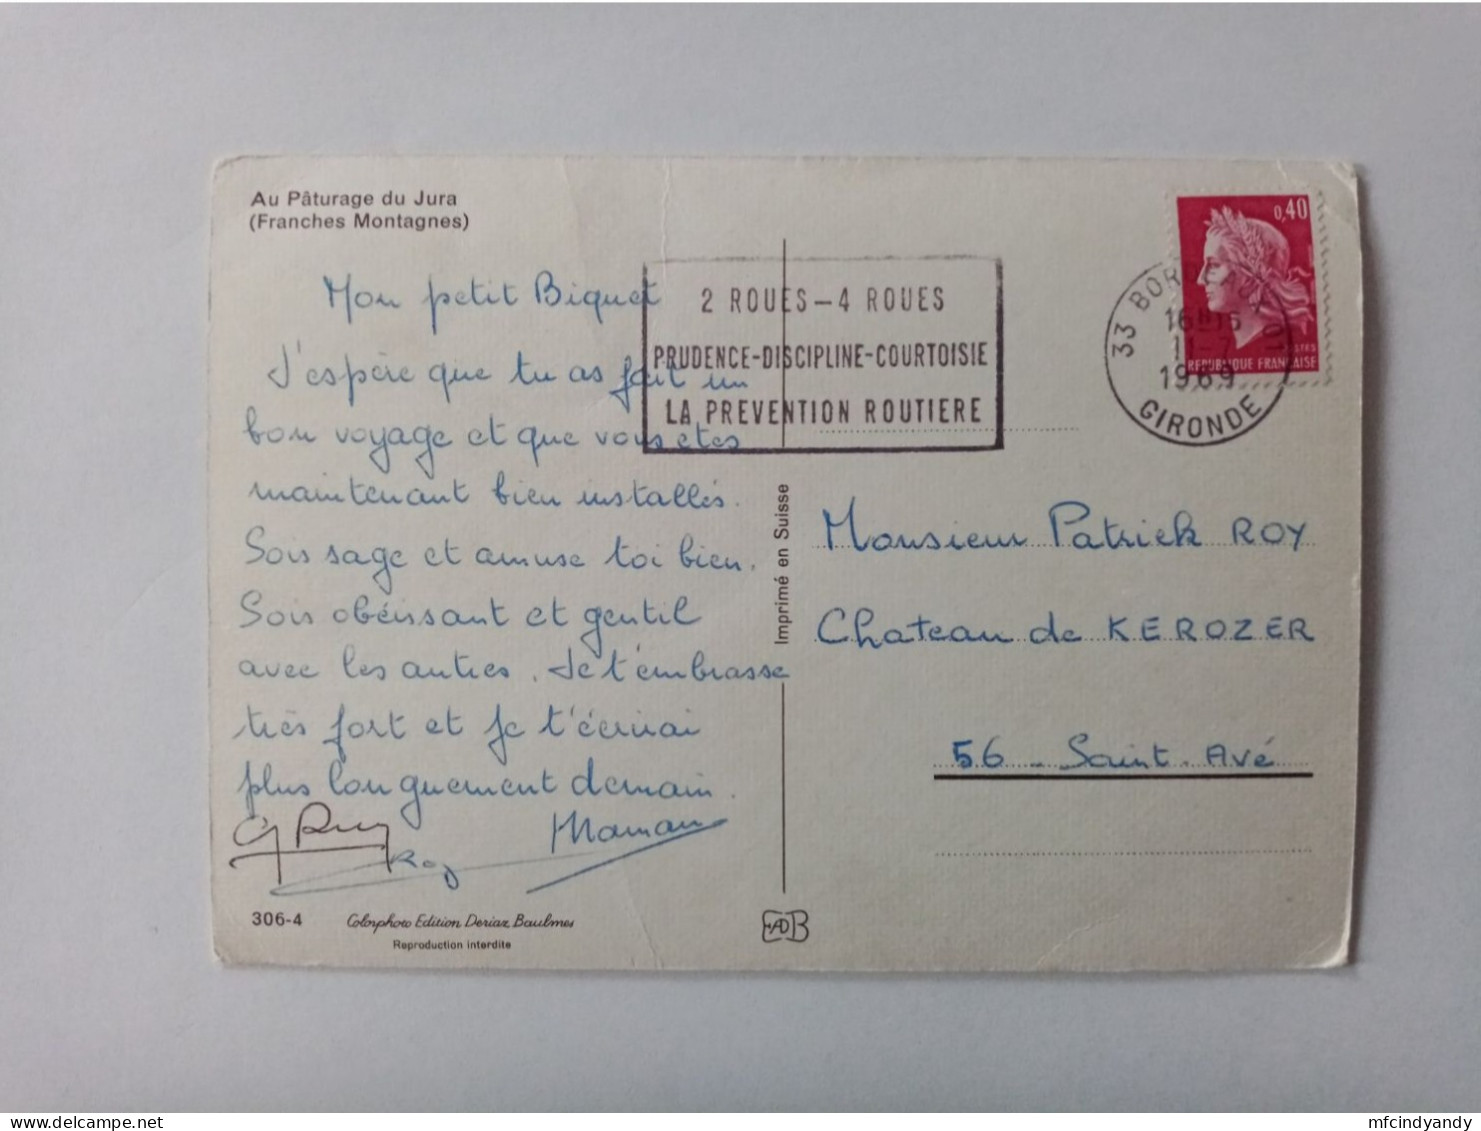 Au Pâturage du Jura
(Franches Montagnes)
Mon petit Biquet
J'espère que tu as fait un
bon voyage et que vous etes
maintenant bien installés.
Sois sage et amuse toi bien.
Sois obéissant et gentil
avec les autres. Je t'embrasse
très fort et je t'écrirai
plus longuement demain.
Maman
Roy
306-4
Colorphoto Edition Deriaz Baulmes
Reproduction interdite
Imprimé en Suisse
2 ROUES-4 ROUES
PRUDENCE-DISCIPLINE-COURTOISIE
LA PREVENTION ROUTIERE
0,40
POSTES
REPUBLIQUE FRANÇAISE
33 BORDEAUX
1969
GIRONDE
Monsieur Patrick ROY
Chateau de KEROZER
56 - Saint. Avé
mfcindyandy